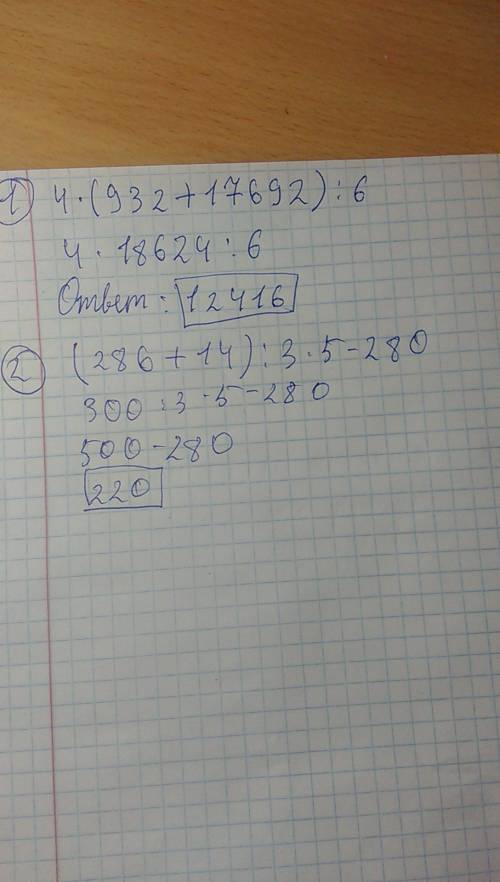 1 4·(932+17692):6
4·18624:6
Ответ: 12416
2 (286+14):3·5-280
300:3·5-280
500-280
220